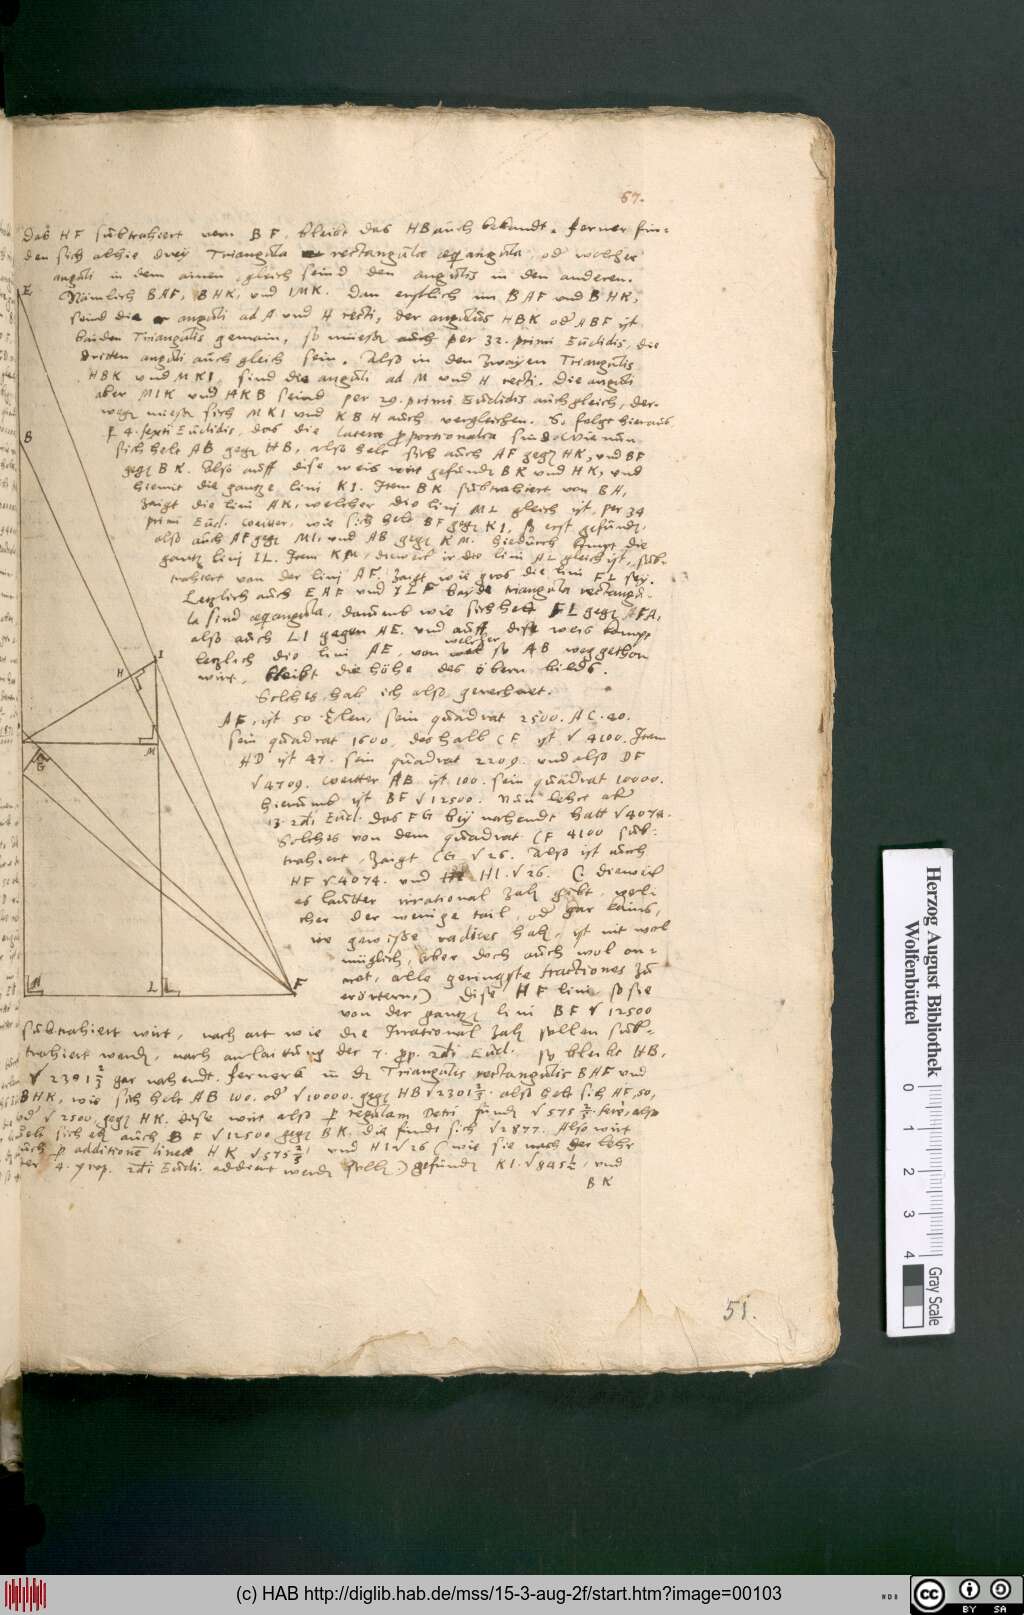 67.
das HF subtrahiert vom BF, bleibt das HB auch bekandt. ferner fin-
den sich alhie drey Triangula rectangula æquiangula, oder welcher
anguli in dem ainen gleich seind den angulis in den anderen.
Nämlich BAF, BHK, und IMK. Dan erstlich im BAF und BHK,
seind die anguli ad A und H recti, der angulus HBK oder ABF ist
baiden Triangulis gemain, so müesse auch per 32. primi Euclidis, die
dritten anguli auch gleich sein. Also in den zwayen Triangulis
HBK und MKI, sind die anguli ad M und H recti. die anguli
aber MIK und HKB seind per 29. primi Euclidis auch gleich, der-
weg müesse sich MKI und KBH auch vergleichen. So folgt hieraus
p 4. sexti Euclidis, das die latera proportionalia sind. Wie nun
sich helt AB gegen HB, also helt sich auch AF gegen HK, und BF
gegen BK. Also auff dise weis wirt gefunden BK und HK, und
hiemit die gantze lini KI. Item BK subtrahiert von BA,
zaigt die lini AK, welcher die linj ML gleich ist, per 34
primi Eucl. weitter, wie sich helt BF gegen KI, so erst gefunden,
also auch AF gegen MI, und AB gegen KM. hiedurch kompt die
gantz linj IL. Item KM, dieweil ir die lini AL gleich ist, sub-
trahiert von der linj AF, zaigt wie gros die lini FL sey.
Letzlich auch EAF und ILF bayde triangula rectangu-
la sind æquiangula, daumb wie sich helt FL gegen AFA,
also auch LI gegen AE. und auff dise weis kompt
letzlich die lini AE, von welcher so AB weggethon
wirt, bleibt die höhe des obern bilds.
Solches hab ich also gerechnet.
AF, ist 50 Elen, sein quadrat 2500. AC. 40.
sein quadrat 1600, deshalb CF ist √ 4100. Item
AD ist 47. sein quadrat 2209. und also DF
√4709. weitter AB ist 100. sein quadrat 10000.
hierumb ist BF √12500. Nun lehrt aber
13. 2di Eucl. das FG bey nahendt hatt √4074.
Solches von dem quadrat CF 4100 sub-
trahiert, zaigt CG √26. Also ist auch
HF √.4074. und HI.√26. (. dieweil
es lautter irrational zaln gibt, wel-
cher der wenige tail, oder gar kains,
ire gewisse radices haben, ist nit wol
müglich, aber doch auch wol on-
not, alle geringste fractiones zu
erörtern.) Dise HF lini so sie
von der gantzen lini BF √ 12500
subtrahiert wirt, nach art wie die Irrational zaln sollen sub-
trahiert werden, nach anlaitung der 7. prop. 2di Eucl. so bleibt HB,
√ 2391 2/3 gar nahendt. ferners in den Triangulis rectangulis BAF und
BHK, wie sich helt AB 100. oder √10000. gegen HB √2301 2/3. also helt sich AF, 50,
oder √ 2500, gegen HK. dise wirt also p regulam Detri funden √ 575 2/3. ferè, also
helt sich auch BF √12500 gegen BK. die findt sich √2877. Also wirt
auch p additionem lineæ HK √575 2/3, und HI √26 (wie sie nach der lehr
der 4. prop. 2di Eucli. addiert werden sollen) gefunden KI. √845 1/2, und
BK
E
B
H
I
M
G
A
L
F
51.
Herzog August Bibliothek
Wolfenbüttel
0 1 2 3 4
Gray Scale
(c) HAB http://diglib.hab.de/mss/15-3-aug-2f/start.htm?image=00103
cc BY SA